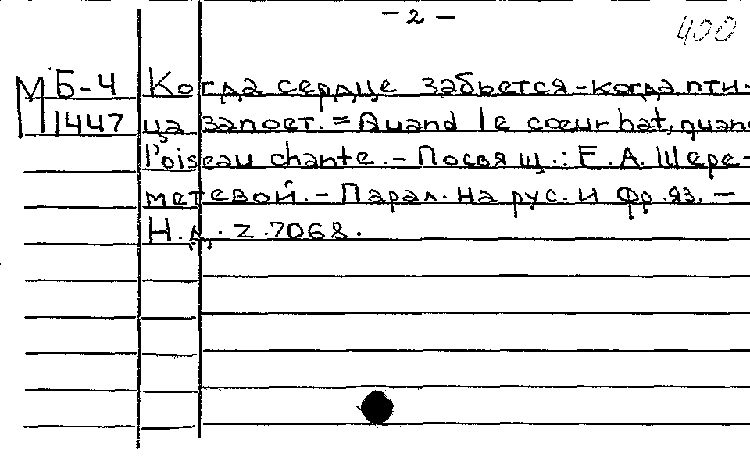 - 2 -
400
М Б-4 Когда сердце забьется - когда пти-
1447 ца запоет. = Quand le cœur bat, quand
l'oiseau chante. - Посвящ.: Е.А. Шере-
метевой. - Парал. на рус. и фр. яз. -
Н.д. Z.7068.